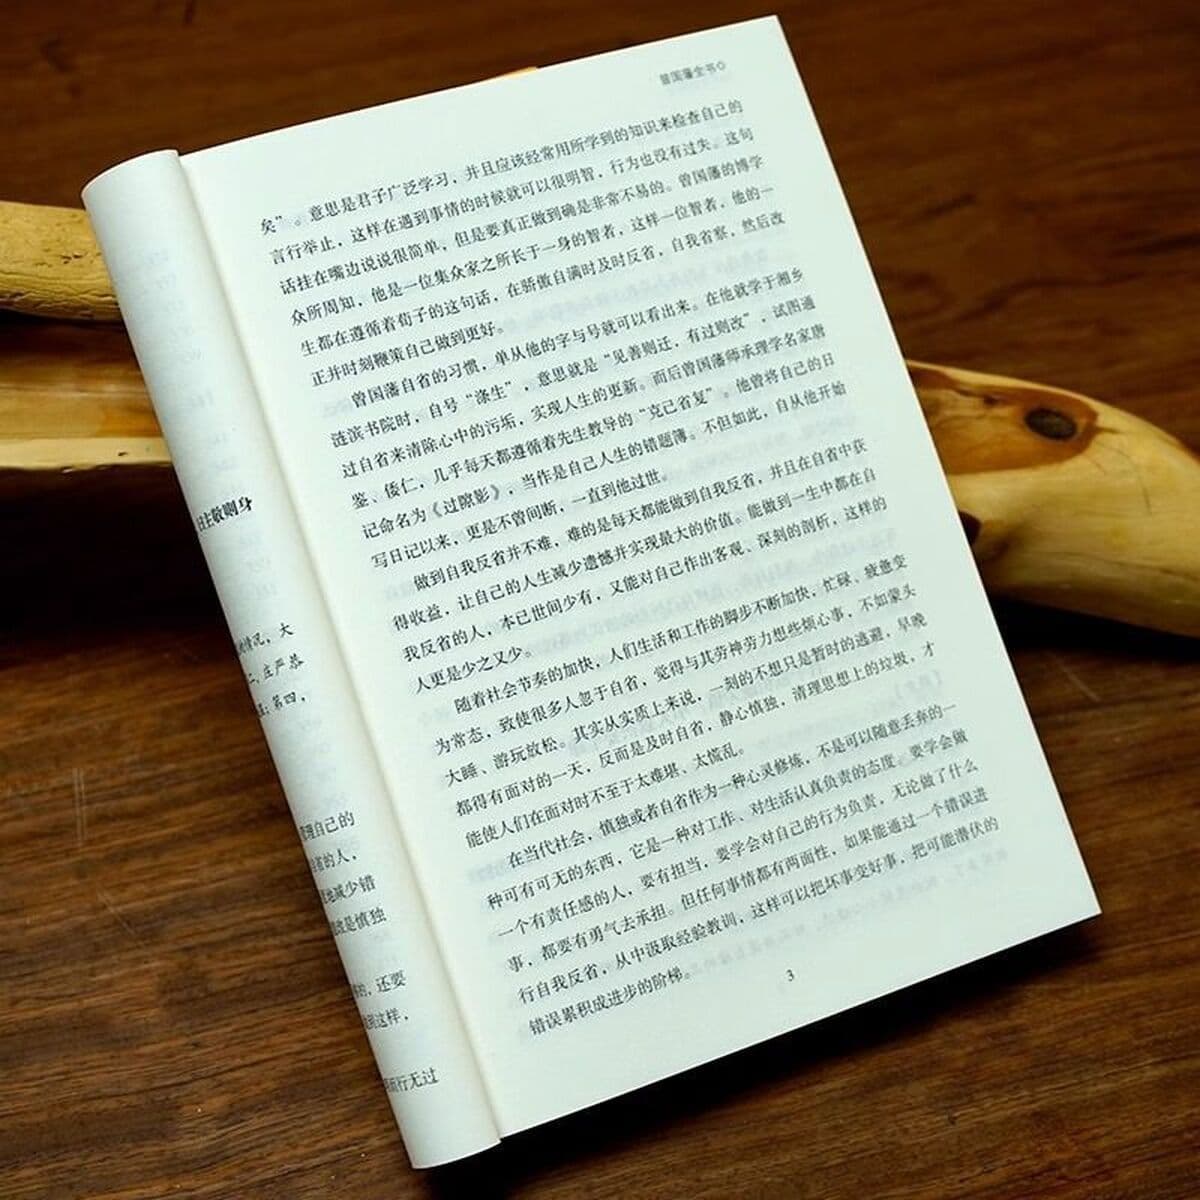 日上敬则身
情况，大
二，庄严恭
；第四，
自己的
省的人，
地减少错
是慎独
的，还要
到这样，
行无过
曾国藩全书
矣”。意思是君子广泛学习，并且应该经常用所学到的知识来检查自己的
言行举止，这样在遇到事情的时候就可以很明智，行为也没有过失。这句
话挂在嘴边说说很简单，但是要真正做到确是非常不易的。曾国藩的博学
众所周知，他是一位集众家之所长于一身的智者，这样一位智者，他的一
生都在遵循着荀子的这句话，在骄傲自满时及时反省，自我省察，然后改
正并时刻鞭策自己做到更好。
曾国藩自省的习惯，单从他的字与号就可以看出来。在他就学于湘乡
涟滨书院时，自号“涤生”，意思就是“见善则迁，有过则改”，试图通
过自省来清除心中的污垢，实现人生的更新。而后曾国藩师承理学名家唐
鉴、倭仁，几乎每天都遵循着先生教导的“克己省复”。他曾将自己的日
记命名为《过隙影》，当作是自己人生的错题簿。不但如此，自从他开始
写日记以来，更是不曾间断，一直到他过世。
做到自我反省并不难，难的是每天都能做到自我反省，并且在自省中获
得收益，让自己的人生减少遗憾并实现最大的价值。能做到一生中都在自
我反省的人，本已世间少有，又能对自己作出客观、深刻的剖析，这样的
人更是少之又少。
随着社会节奏的加快，人们生活和工作的脚步不断加快，忙碌、疲惫变
为常态，致使很多人忽于自省，觉得与其劳神劳力想些烦心事，不如蒙头
大睡、游玩放松。其实从实质上来说，一刻的不想只是暂时的逃避，早晚
都得有面对的一天，反而是及时自省，静心慎独，清理思想上的垃圾，才
能使人们在面对时不至于太难堪、太慌乱。
在当代社会，慎独或者自省作为一种心灵修炼，不是可以随意丢弃的一
种可有可无的东西，它是一种对工作、对生活认真负责的态度。要学会做
一个有责任感的人，要有担当，要学会对自己的行为负责，无论做了什么
事，都要有勇气去承担。但任何事情都有两面性，如果能通过一个错误进
行自我反省，从中汲取经验教训，这样可以把坏事变好事，把可能潜伏的
错误累积成进步的阶梯。
3